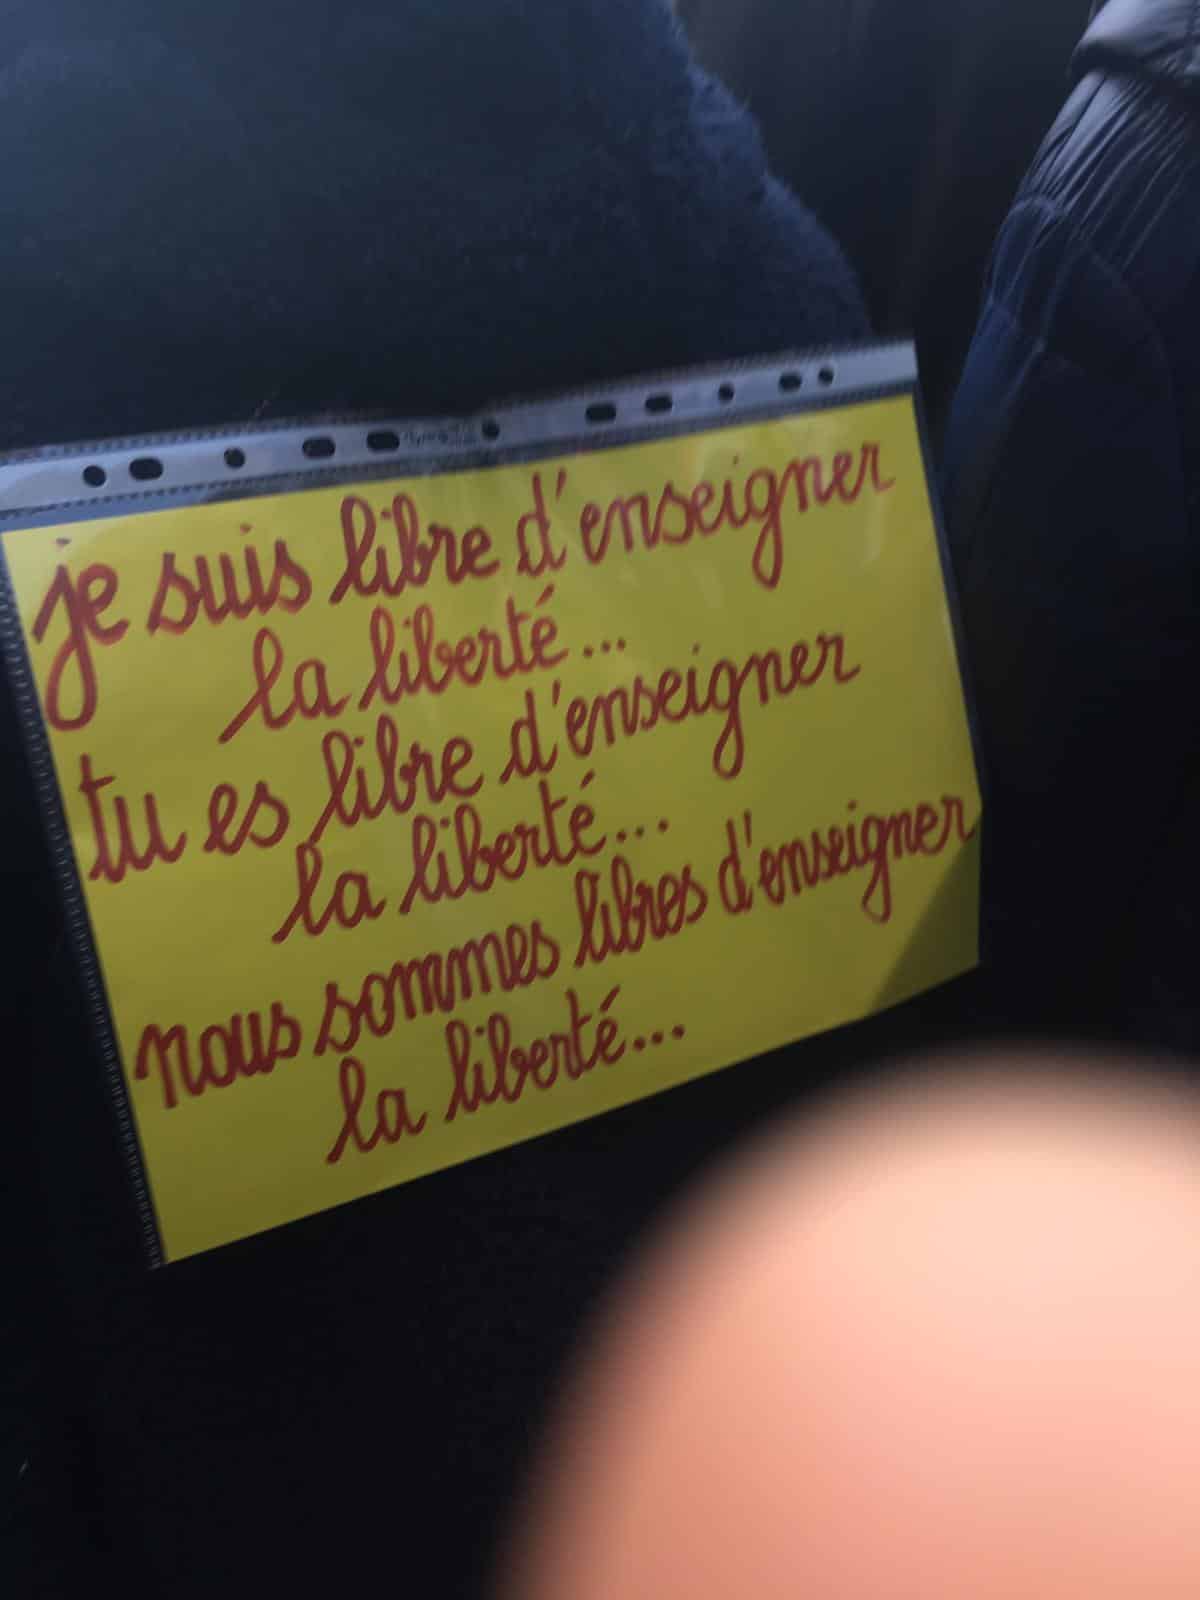 je suis libre d'enseigner
la liberté...
tu es libre d'enseigner
la liberté...
nous sommes libres d'enseigner
la liberté...